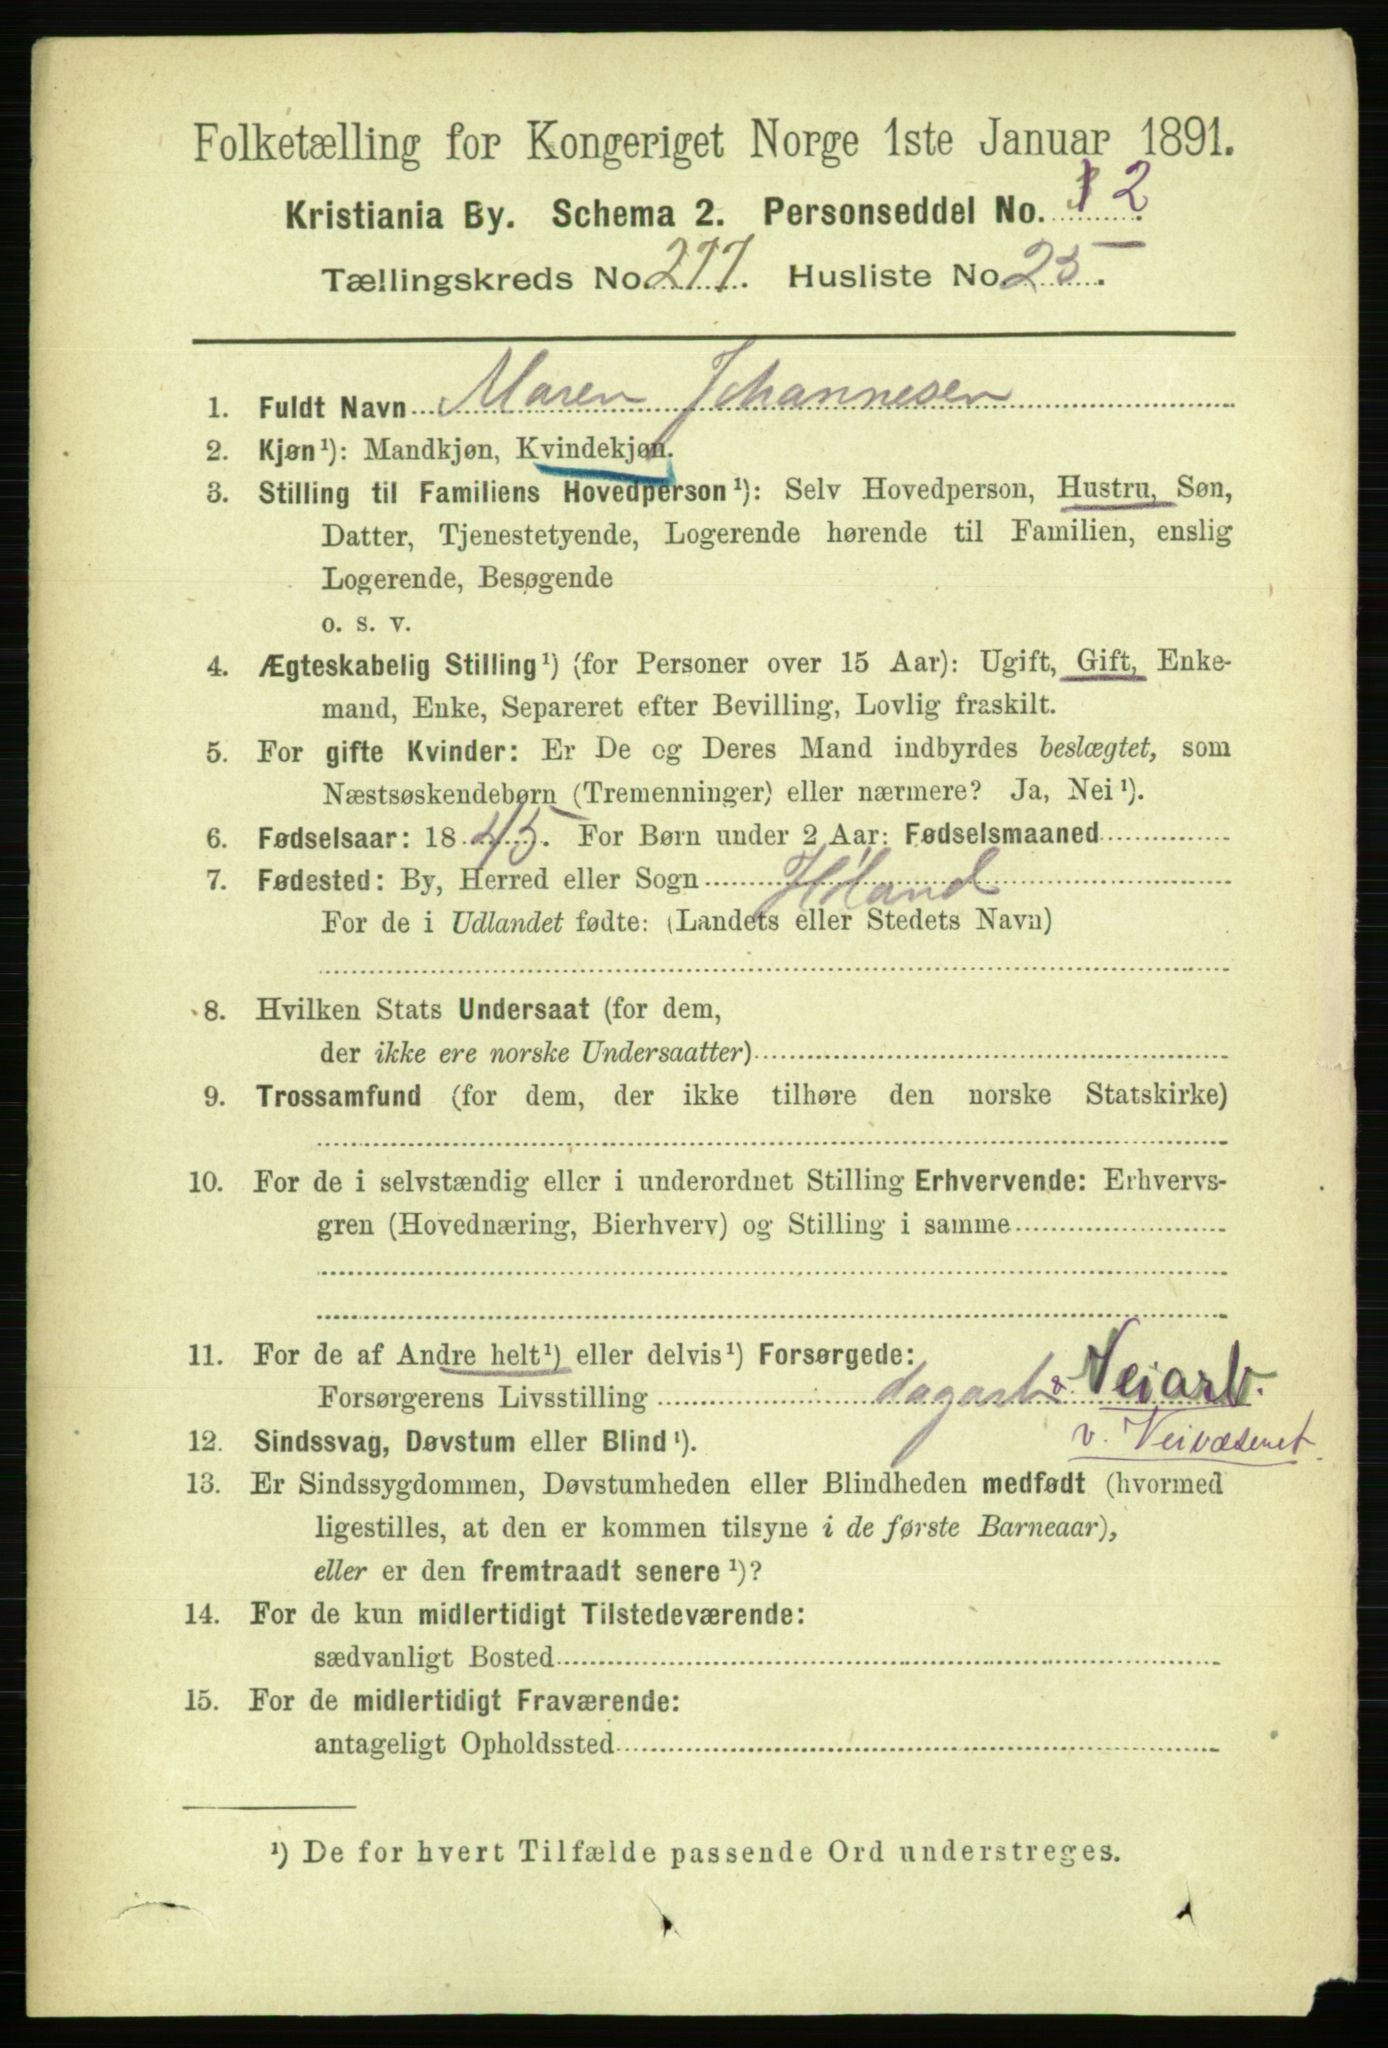 Folketælling for Kongeriget Norge 1ste Januar 1891.
Kristiania By. Schema 2. Personseddel No. 2
Tællingskreds No. 277. Husliste No. 25.
1. Fuldt Navn Maren Johannesen
2. Kjøn¹): Mandkjøn, Kvindekjøn.
3. Stilling til Familiens Hovedperson¹): Selv Hovedperson, Hustru, Søn,
Datter, Tjenestetyende, Logerende hørende til Familien, enslig
Logerende, Besøgende
o. s. v.
4. Ægteskabelig Stilling¹) (for Personer over 15 Aar): Ugift, Gift, Enke-
mand, Enke, Separeret efter Bevilling, Lovlig fraskilt.
5. For gifte Kvinder: Er De og Deres Mand indbyrdes beslægtet, som
Næstsøskendebørn (Tremenninger) eller nærmere? Ja, Nei¹).
6. Fødselsaar: 1845. For Børn under 2 Aar: Fødselsmaaned
7. Fødested: By, Herred eller Sogn Høland
For de i Udlandet fødte: (Landets eller Stedets Navn)
8. Hvilken Stats Undersaat (for dem,
der ikke ere norske Undersaatter)
9. Trossamfund (for dem, der ikke tilhøre den norske Statskirke)
10. For de i selvstændig eller i underordnet Stilling Erhvervende: Erhvervs-
gren (Hovednæring, Bierhverv) og Stilling i samme
11. For de af Andre helt¹) eller delvis¹) Forsørgede:
Forsørgerens Livsstilling dagarb. Veiarb.
v. Veivæsenet.
12. Sindssvag, Døvstum eller Blind¹).
13. Er Sindssygdommen, Døvstumheden eller Blindheden medfødt (hvormed
ligestilles, at den er kommen tilsyne i de første Barneaar),
eller er den fremtraadt senere¹)?
14. For de kun midlertidigt Tilstedeværende:
sædvanligt Bosted
15. For de midlertidigt Fraværende:
antageligt Opholdssted
¹) De for hvert Tilfælde passende Ord understreges.